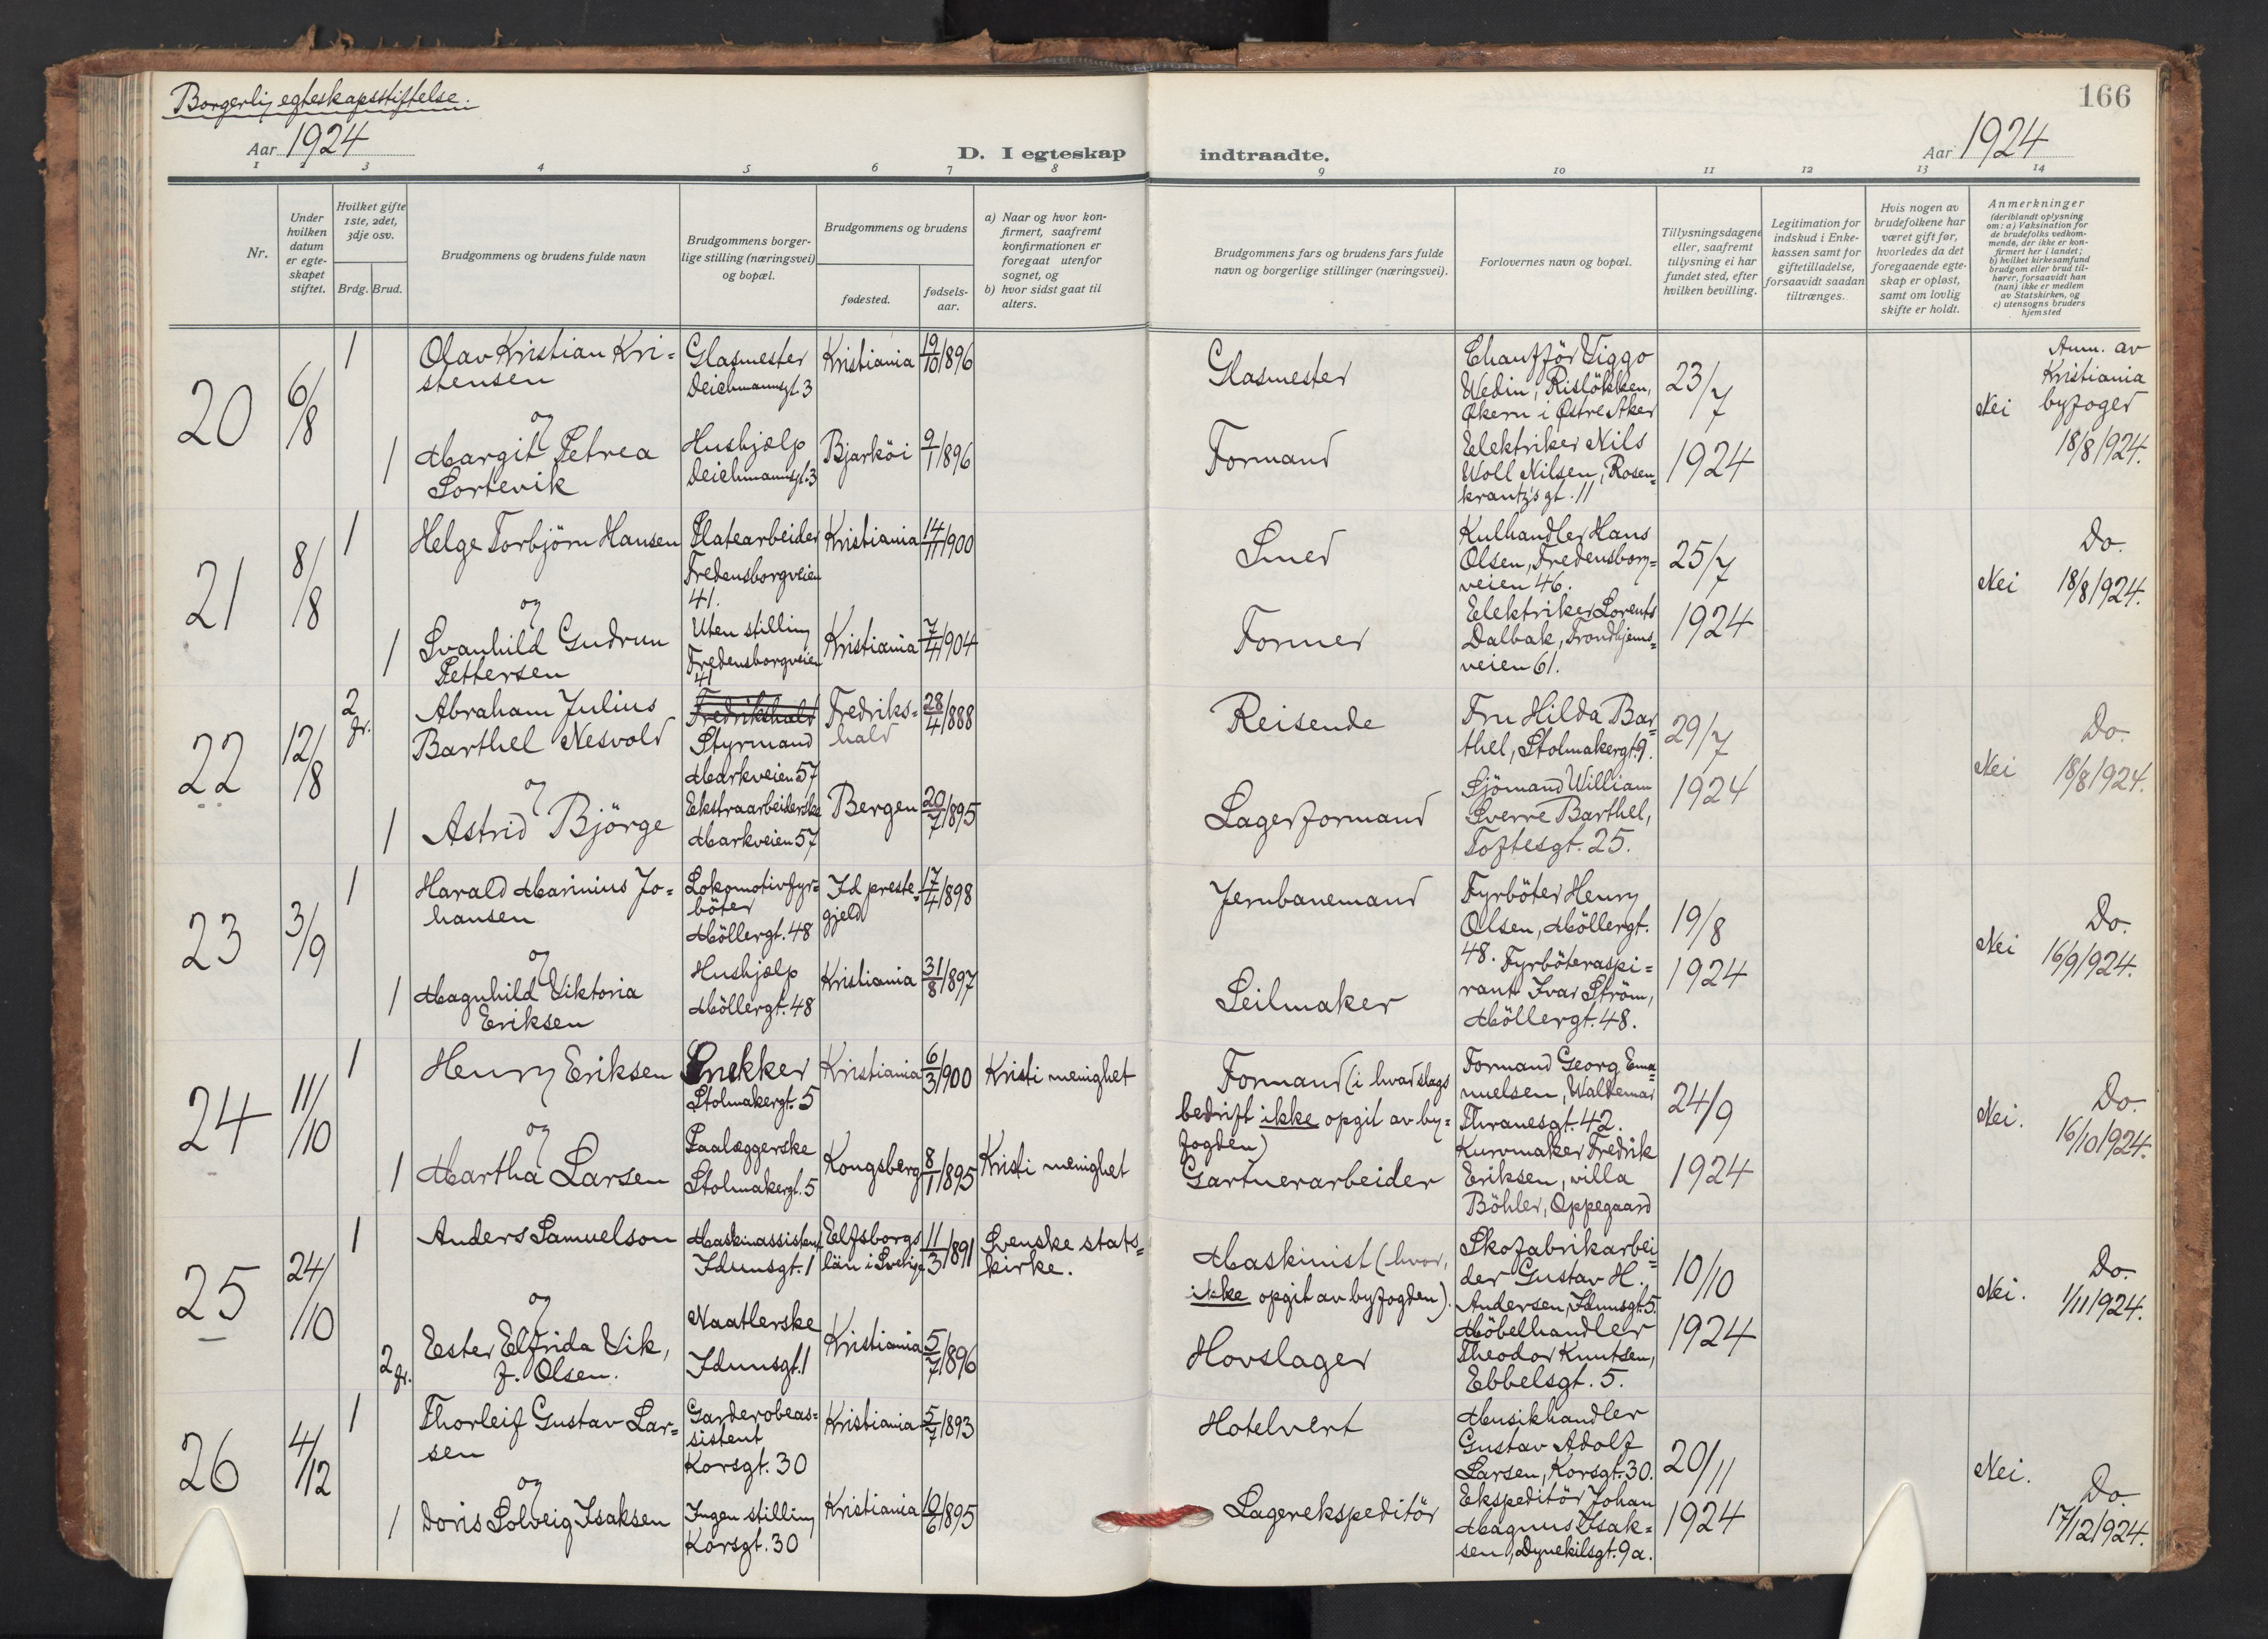 Borgerlig egteskapsstiftelse.
166
Aar 1924
D. I egteskap indtraadte.
Aar 1924
1 2 3 4 5 6 7 8 9 10 11 12 13 14
Nr.
Under hvilken datum er egteskapet stiftet.
Hvilket gifte 1ste, 2det, 3dje osv.
Brdg. Brud.
Brudgommens og brudens fulde navn
Brudgommens borgerlige stilling (næringsvei) og bopæl.
Brudgommens og brudens
fødested.
fødselsaar.
a) Naar og hvor konfirmert, saafremt konfirmationen er foregaat utenfor sognet, og
b) hvor sidst gaat til alters.
Brudgommens fars og brudens fars fulde navn og borgerlige stillinger (næringsvei).
Forlovernes navn og bopæl.
Tillysningsdagene eller, saafremt tillysning ei har fundet sted, efter hvilken bevilling.
Legitimation for indskud i Enkekassen samt for giftetilladelse, forsaavidt saadan tiltrænges.
Hvis nogen av brudefolkene har været gift før, hvorledes da det foregaaende egteskap er opløst, samt om lovlig skifte er holdt.
Anmerkninger
(deriblandt oplysning om: a) Vaksination for de brudefolks vedkommende, der ikke er konfirmert her i landet; b) hvilket kirkesamfund brudgom eller brud tilhører, forsaavidt han (hun) ikke er medlem av Statskirken, og c) utensogns bruders hjemsted
20
6/8
1
Olav Kristian Kristensen
Glasmester
Deichmannsgt. 3
Kristiania
19/10 1896
Glasmester
Chauffør Viggo
Wedin, Risløkken,
Økern i Østre Aker
23/7
Nei
Anm. av
Kristiania
byfoged
18/8 1924.
og
1
Margit Petrea
Sortevik
Hushjælp
Deichmannsgt. 3
Bjarköi
9/1 1896
Formand
Elektriker Nils
Woll Nilsen, Rosen-
krantz's gt. 11
1924
21
8/8
1
Helge Torbjörn Hansen
Platearbeider
Fredensborgveien
41.
Kristiania
14/11 1900
Smed
Kulhandler Hans
Olsen, Fredensborg-
veien 46.
25/7
Nei
Do.
18/8 1924.
og
1
Svanhild Gudrun
Pettersen
Uten stilling
Fredensborgveien
41
Kristiania
7/4 1904
Former
Elektriker Lorents
Dalbak, Trondhjems-
veien 61.
1924
22
12/8
2 gr.
Abraham Julius
Barthel Nesvold
Fredrikshald
Styrmand
Markveien 57
Fredriks-
hald
28/4 1888
Reisende
Fru Hilda Bar-
thel, Stolmakergt. 9.
29/7
Nei
Do.
18/8 1924.
og
1
Astrid Björge
Ekstraarbeiderske
Markveien 57
Bergen
20/7 1895
Lagerformand
Sjömand William
Sverre Barthel,
Toftesgt. 25.
1924
23
3/9
1
Harald Marinius Jo-
hansen
Lokomotivfyr-
böter
Möllergt. 48
Id preste-
gjeld
17/4 1898
Jernbanemand
Fyrböter Henry
Olsen, Möllergt.
48.
19/8
Nei
Do.
16/9 1924.
og
1
Magnhild Viktoria
Eriksen
Hushjælp
Möllergt. 48
Kristiania
31/8 1897
Seilmaker
Fyrböteraspi-
rant Ivar Ström,
Möllergt. 48.
1924
24
11/10
1
Henry Eriksen
Snekker
Stolmakergt. 5
Kristiania
6/3 1900
Kristi menighet
Formand (i hvadslags
bedrift ikke opgit av by-
fogden)
Formand Georg Ema-
nuelsen, Waldemar
Thranesgt. 42.
24/9
Nei.
Do.
16/10 1924.
og
1
Martha Larsen
Paalæggerske
Stolmakergt. 5
Kongsberg
8/1 1895
Kristi menighet
Gartnerarbeider
Kurvmaker Fredrik
Eriksen, villa
Böhler, Oppegaard
1924
25
24/10
1
Anders Samuelson
Maskinassistent
Idunsgt. 1
Elfsborgs
län i Sverige
11/3 1891
Svenske stats-
kirke.
Maskinist (hvor,
ikke opgit av byfogden).
Skofabrikarbei-
der Gustav H.
Andersen, Idunsgt. 5.
10/10
Nei.
Do.
1/11 1924.
og
2 gr.
Ester Elfrida Vik,
f. Olsen.
Naatlerske
Idunsgt. 1
Kristiania
5/7 1896
Hovslager
Möbelhandler
Theodor Knutsen,
Ebbelsgt. 5.
1924
26
4/12
1
Thorleif Gustav Lar-
sen
Garderobeas-
sistent
Korsgt. 30
Kristiania
5/7 1893
Hotelvert
Musikhandler
Gustav Adolf
Larsen, Korsgt. 30.
20/11
Nei.
Do.
17/12 1924.
og
1
Doris Solveig Isaksen
Ingen stilling
Korsgt. 30
Kristiania
10/6 1895
Lagerekspeditör
Ekspeditör Johan
Magnus Isak-
sen, Dynekilsgt. 9a.
1924